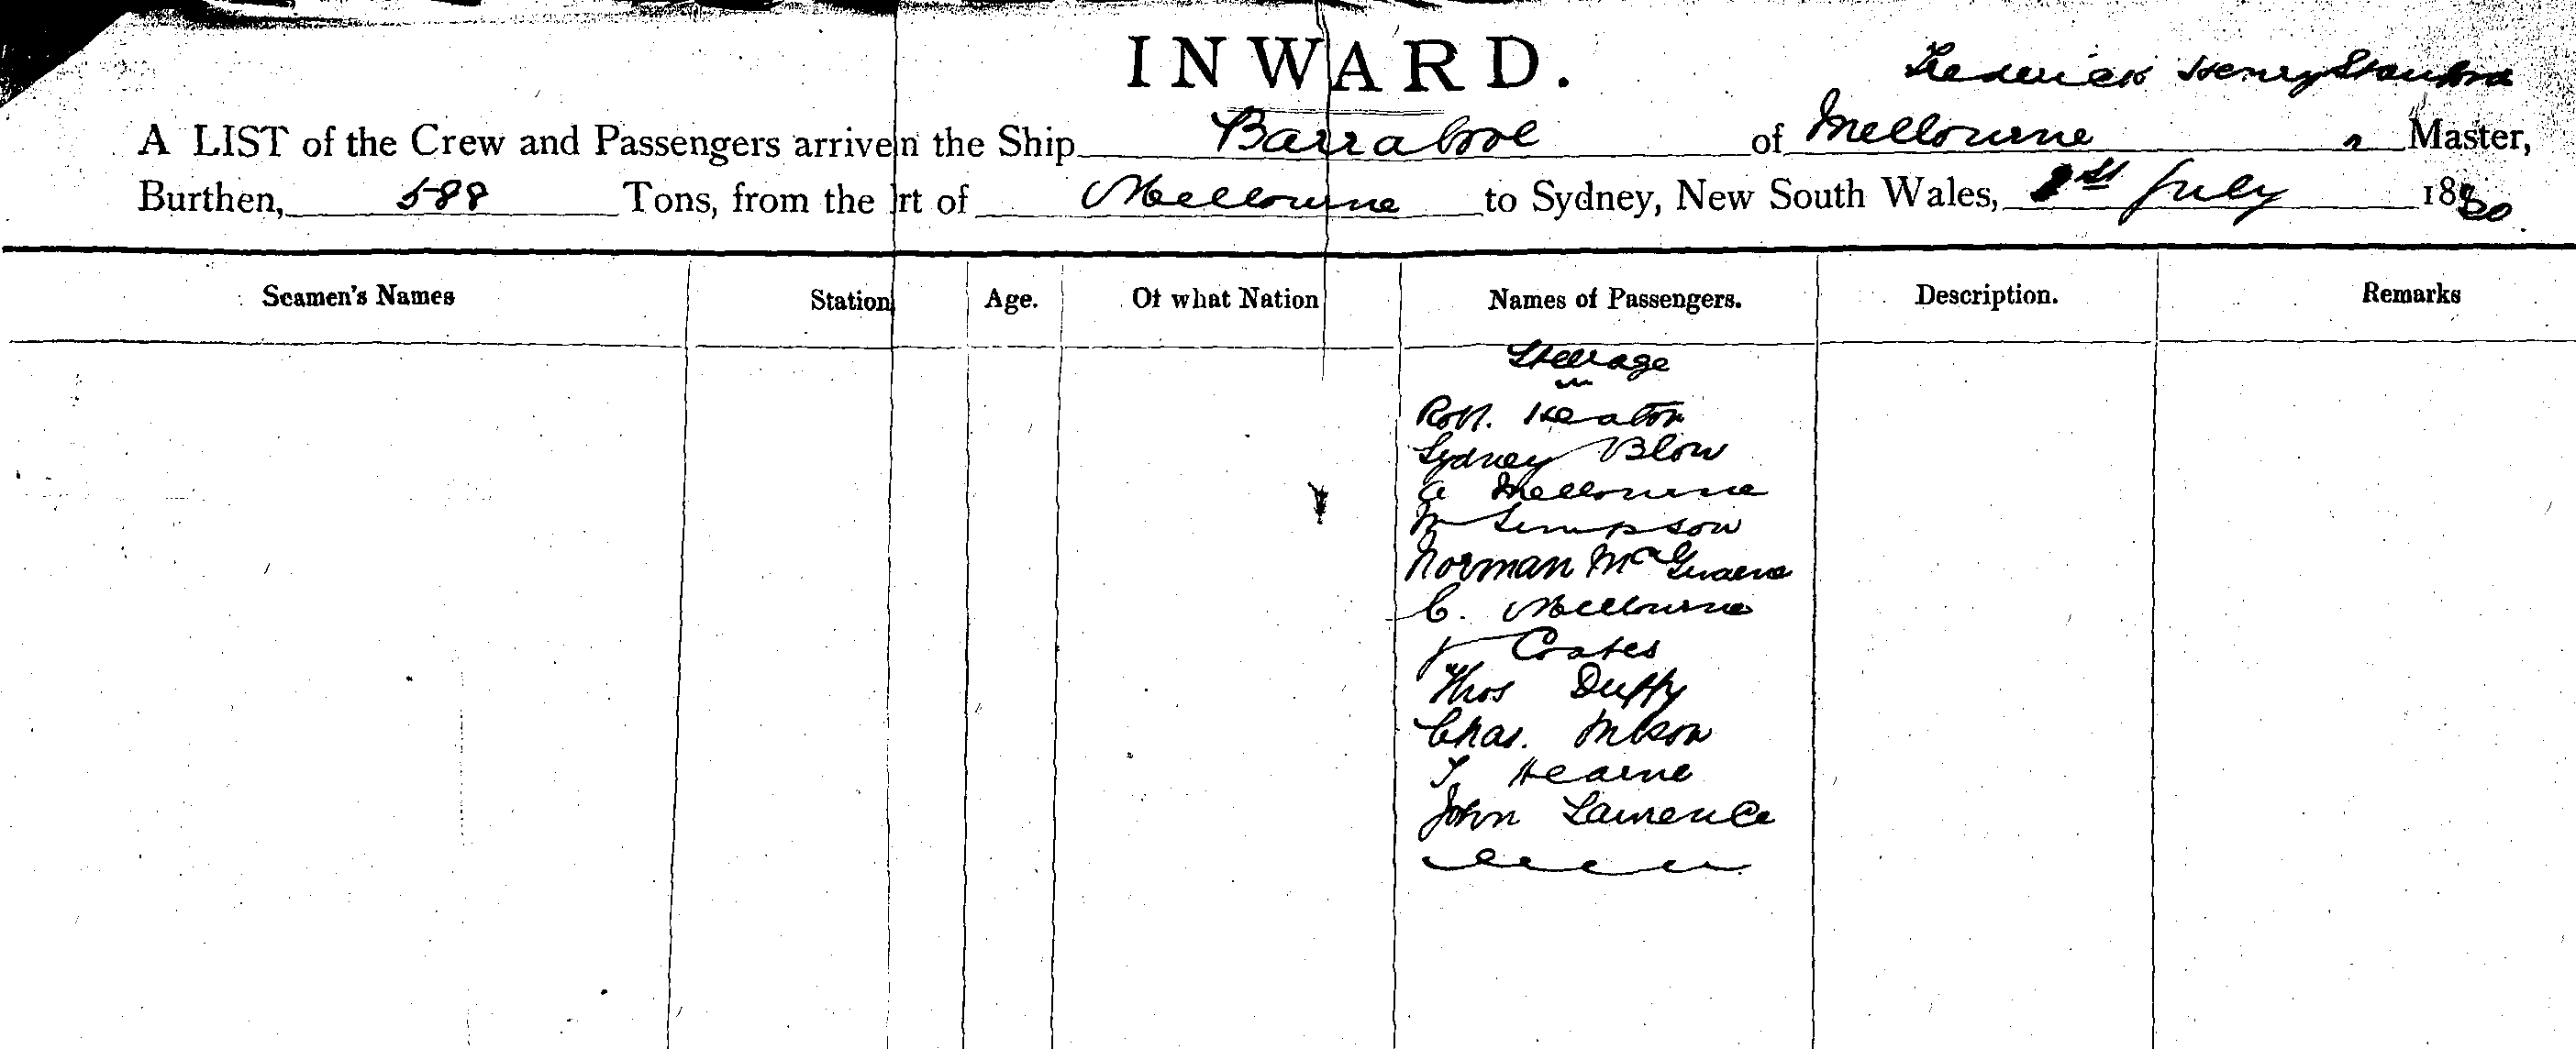 INWARD.
Frederick Henry
A LIST of the Crew and Passengers arrive n the Ship Barrabool of Melbourne " Master,
Burthen, 588 Tons, from the rt of Melbourne to Sydney, New South Wales, 1st July 1880
Seamen's Names Station Age. Of what Nation Names of Passengers. Description. Remarks
Steerage
Robt. Heaton
Sydney Blow
A Melbourne
M Simpson
Norman Mc
C. Melbourne
J Coates
Thos Duffy
Chas.
T. Hearne
John Lawrence